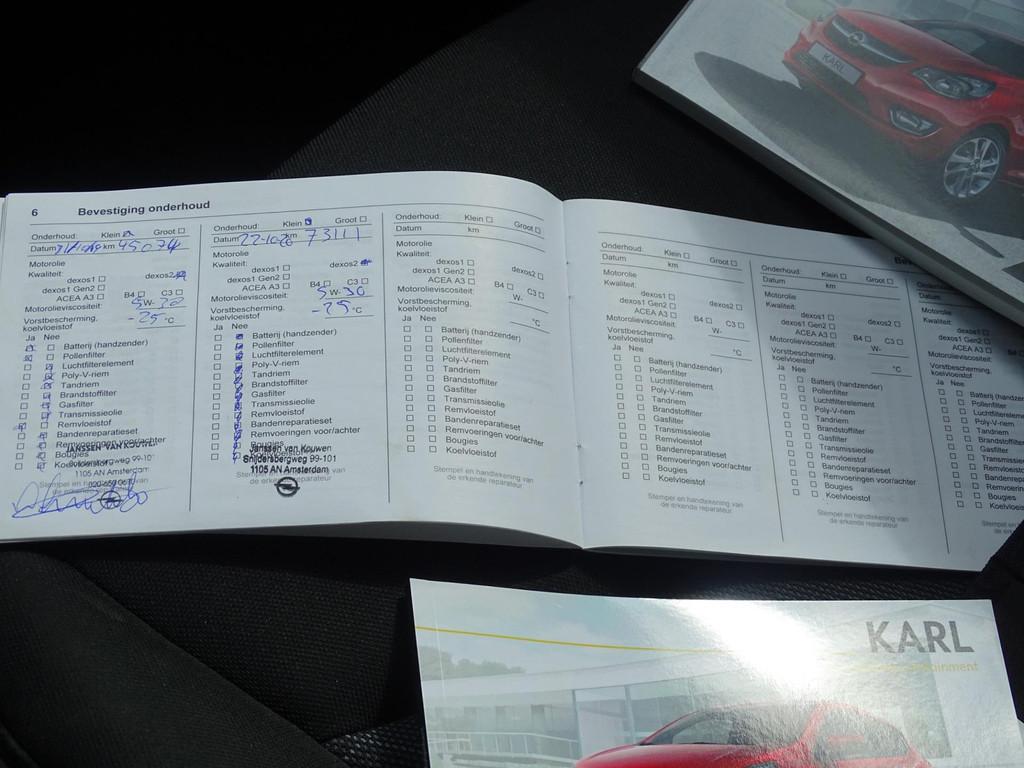 KARL
6 Bevestiging onderhoud
Onderhoud: Klein ☐ Groot ☐
Datum km 45074
Motorolie
Kwaliteit:
dexos1 ☐ dexos2
dexos1 Gen2 ☐
ACEA A3 ☐ B4 ☐ C3 ☐
Motorolieviscositeit: 5W-30
Vorstbescherming,
koelvloeistof -25 °C
Ja Nee
Batterij (handzender)
Pollenfilter
Luchtfilterelement
Poly-V-riem
Tandriem
Brandstoffilter
Gasfilter
Transmissieolie
Remvloeistof
Bandenreparatieset
Remvoeringen voor/achter
Bougies
Koelvloeistof
JANSSEN VAN KOUWEN
1105 AN Amsterdam
Onderhoud: Klein Groot ☐
Datum 73111
Motorolie
Kwaliteit:
dexos1 ☐ dexos2
dexos1 Gen2 ☐
ACEA A3 ☐ B4 ☐ C3 ☐
Motorolieviscositeit: 5W-30
Vorstbescherming,
koelvloeistof -25 °C
Ja Nee
Batterij (handzender)
Pollenfilter
Luchtfilterelement
Poly-V-riem
Tandriem
Brandstoffilter
Gasfilter
Transmissieolie
Remvloeistof
Bandenreparatieset
Remvoeringen voor/achter
Bougies
Janssen van Kouwen
Snijdersbergweg 99-101
1105 AN Amsterdam
de erkende reparateur
Onderhoud: Klein ☐ Groot ☐
Datum km
Motorolie
Kwaliteit:
dexos1 ☐ dexos2 ☐
dexos1 Gen2 ☐
ACEA A3 ☐ B4 ☐ C3 ☐
Motorolieviscositeit: W-
Vorstbescherming,
koelvloeistof °C
Ja Nee
☐ ☐ Batterij (handzender)
☐ ☐ Pollenfilter
☐ ☐ Luchtfilterelement
☐ ☐ Poly-V-riem
☐ ☐ Tandriem
☐ ☐ Brandstoffilter
☐ ☐ Gasfilter
☐ ☐ Transmissieolie
☐ ☐ Remvloeistof
☐ ☐ Bandenreparatieset
☐ ☐ Remvoeringen voor/achter
☐ ☐ Bougies
☐ ☐ Koelvloeistof
Stempel en handtekening van
de erkende reparateur
Onderhoud: Klein ☐ Groot ☐
Datum km
Motorolie
Kwaliteit:
dexos1 ☐ dexos2 ☐
dexos1 Gen2 ☐
ACEA A3 ☐ B4 ☐ C3 ☐
Motorolieviscositeit: W-
Vorstbescherming,
koelvloeistof °C
Ja Nee
☐ ☐ Batterij (handzender)
☐ ☐ Pollenfilter
☐ ☐ Luchtfilterelement
☐ ☐ Poly-V-riem
☐ ☐ Tandriem
☐ ☐ Brandstoffilter
☐ ☐ Gasfilter
☐ ☐ Transmissieolie
☐ ☐ Remvloeistof
☐ ☐ Bandenreparatieset
☐ ☐ Remvoeringen voor/achter
☐ ☐ Bougies
☐ ☐ Koelvloeistof
Stempel en handtekening van
de erkende reparateur
Be
Onderhoud: Klein ☐ Groot ☐
Datum km
Motorolie
Kwaliteit:
dexos1 ☐ dexos2 ☐
dexos1 Gen2 ☐
ACEA A3 ☐ B4 ☐ C3 ☐
Motorolieviscositeit: W-
Vorstbescherming,
koelvloeistof °C
Ja Nee
☐ ☐ Batterij (handzender)
☐ ☐ Pollenfilter
☐ ☐ Luchtfilterelement
☐ ☐ Poly-V-riem
☐ ☐ Tandriem
☐ ☐ Brandstoffilter
☐ ☐ Gasfilter
☐ ☐ Transmissieolie
☐ ☐ Remvloeistof
☐ ☐ Bandenreparatieset
☐ ☐ Remvoeringen voor/achter
☐ ☐ Bougies
☐ ☐ Koelvloeistof
Stempel en handtekening van
de erkende reparateur
Onderhoud:
Datum
Motorolie
Kwaliteit:
dexos1 ☐
dexos1 Gen2 ☐
ACEA A3 ☐
Motorolieviscositeit
Vorstbescherming,
koelvloeistof
Ja Nee
Batterij (handze
Pollenfilter
Luchtfiltereleme
Poly-V-riem
Tandriem
Brandstoffilter
Gasfilter
Transmissieolie
Remvloeistof
Bandenrepara
Remvoeringen
Bougies
Koelvloeistof
KARL